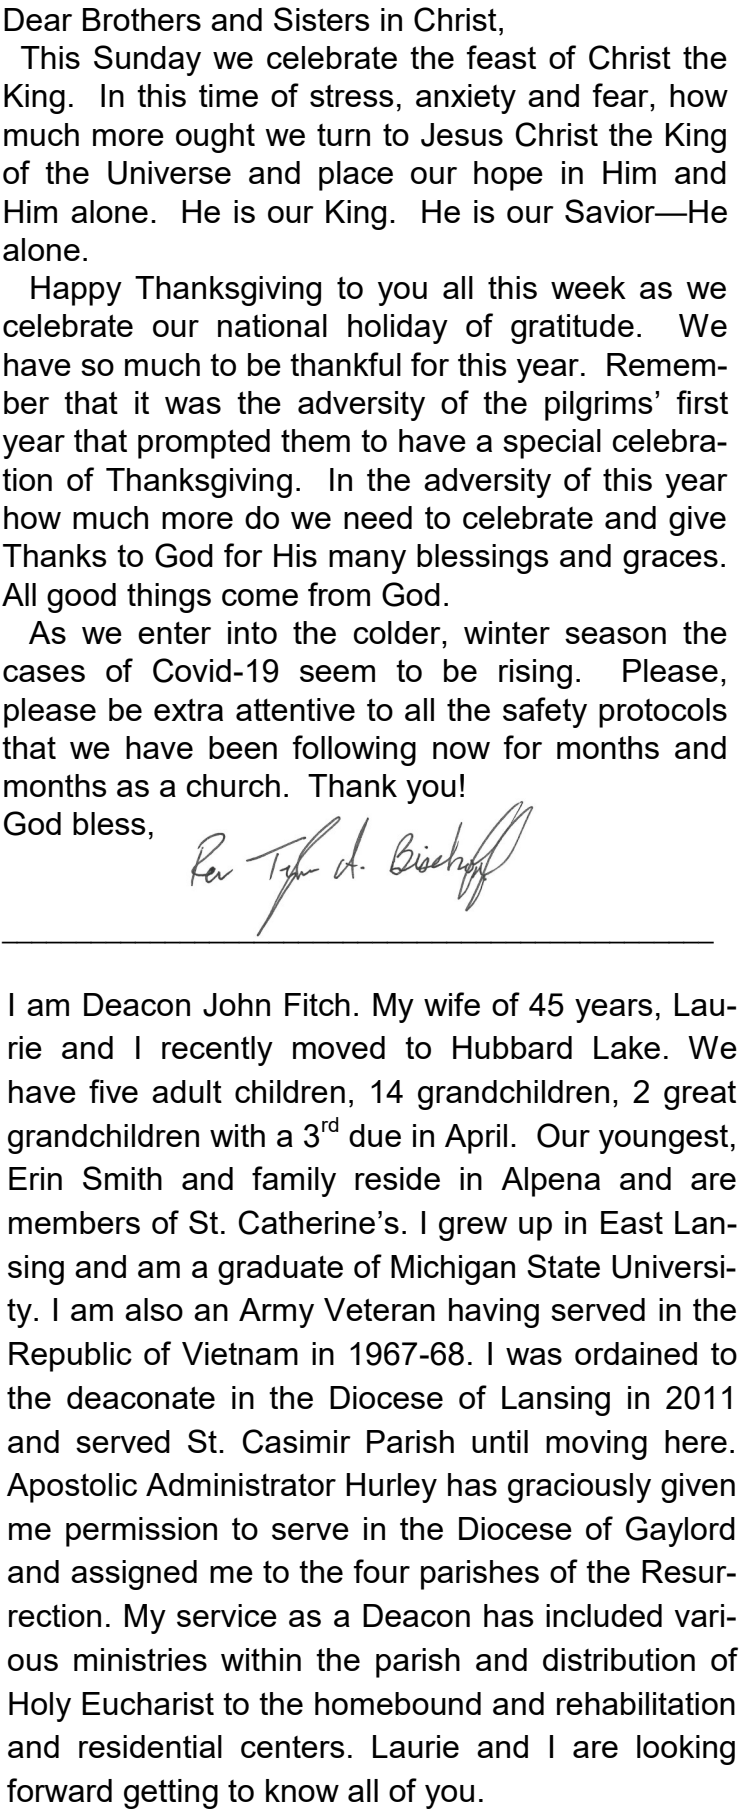 Dear Brothers and Sisters in Christ,
This Sunday we celebrate the feast of Christ the
King. In this time of stress, anxiety and fear, how
much more ought we turn to Jesus Christ the King
of the Universe and place our hope in Him and
Him alone. He is our King. He is our Savior—He
alone.
Happy Thanksgiving to you all this week as we
celebrate our national holiday of gratitude. We
have so much to be thankful for this year. Remem-
ber that it was the adversity of the pilgrims’ first
year that prompted them to have a special celebra-
tion of Thanksgiving. In the adversity of this year
how much more do we need to celebrate and give
Thanks to God for His many blessings and graces.
All good things come from God.
As we enter into the colder, winter season the
cases of Covid-19 seem to be rising. Please,
please be extra attentive to all the safety protocols
that we have been following now for months and
months as a church. Thank you!
God bless,
Rev Tyler A. Bischoff
I am Deacon John Fitch. My wife of 45 years, Lau-
rie and I recently moved to Hubbard Lake. We
have five adult children, 14 grandchildren, 2 great
grandchildren with a 3rd due in April. Our youngest,
Erin Smith and family reside in Alpena and are
members of St. Catherine’s. I grew up in East Lan-
sing and am a graduate of Michigan State Universi-
ty. I am also an Army Veteran having served in the
Republic of Vietnam in 1967-68. I was ordained to
the deaconate in the Diocese of Lansing in 2011
and served St. Casimir Parish until moving here.
Apostolic Administrator Hurley has graciously given
me permission to serve in the Diocese of Gaylord
and assigned me to the four parishes of the Resur-
rection. My service as a Deacon has included vari-
ous ministries within the parish and distribution of
Holy Eucharist to the homebound and rehabilitation
and residential centers. Laurie and I are looking
forward getting to know all of you.